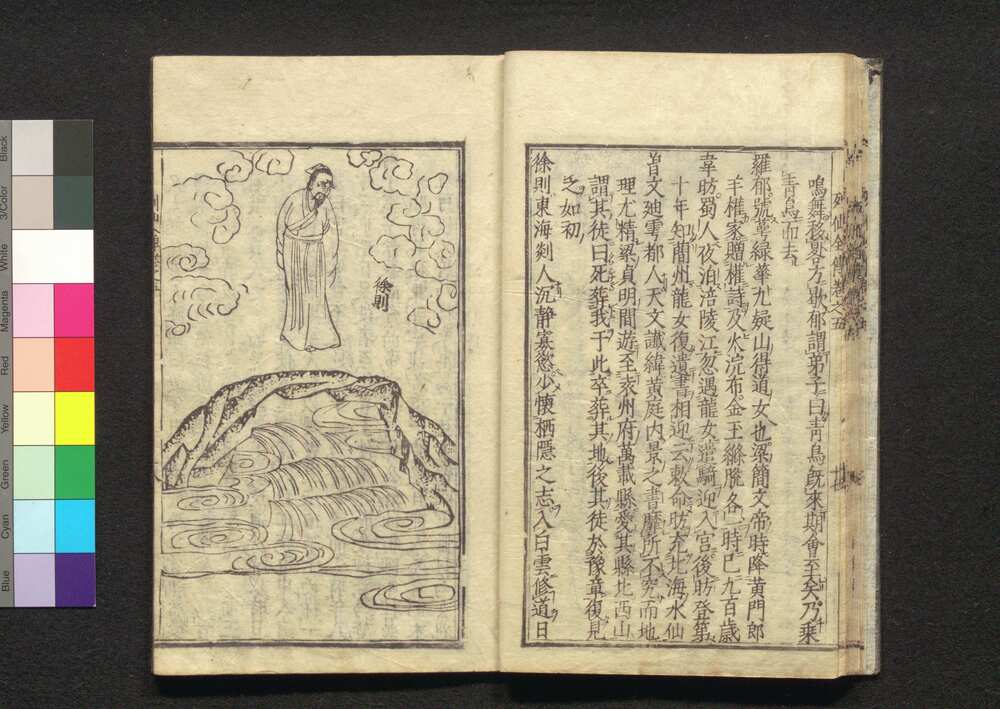 鳴舞移晷方歇郁謂弟子曰青鳥既來期會至矣乃乘
青鳥而去
羅郁號萼緑華九疑山得道女也梁簡文帝時降黄門郎
羊權家贈權詩及火浣布金玉條脱各一時已九百歳
韋昉蜀人夜泊涪陵江忽遇龍女遣騎迎入宮後昉登第
十年知蘭州龍女復遺書相迎云敕命昉充北海水仙
曽文廸雩都人天文讖緯黄庭内景之書靡所不究而地
理尤精梁貞明間遊至袁州府萬載縣愛其縣北西山
謂其徒曰死葬我于此卒葬其地後其徒於豫章復見
之如初
徐則東海剡人沉静寡慾少懐栖隠之志入白雲修道日
徐則
Black
3/Color
White
Magenta
Red
Yellow
Green
Cyan
Blue